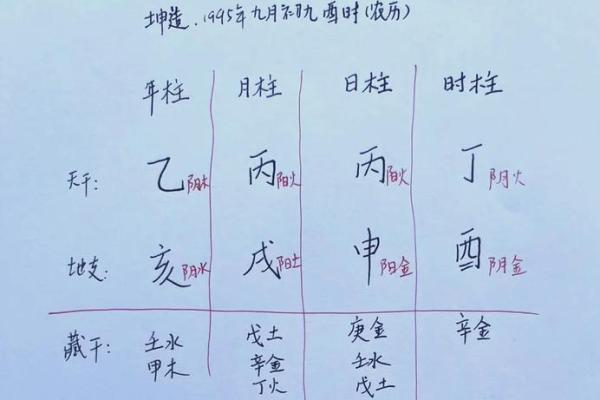 坤造.1995年九月初九 酉时(农历)
年柱 月柱 日柱 时柱
天干: 乙阴木 丙阳火 丙阳火 丁阴火
地支: 亥阴水 戌阳土 申阳金 酉阴金
藏干: 壬水 戊土 庚金 辛金
甲木 辛金 壬水
丁火 戊土